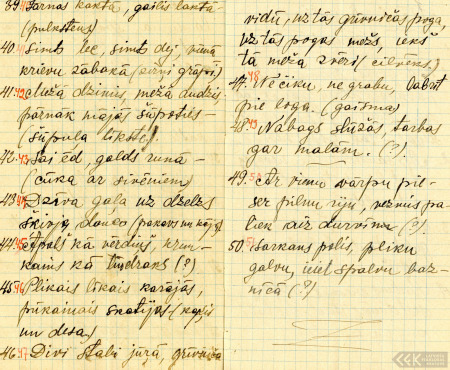 39. Žarnas kaktā, gailis laktā-
(pulkstens)
40. Simts lec, simts dej, vienā
krievu zābakā (zirņi grāpī)
41. Mežā dzimis, mežā audzis
pārnāk mājās šūpoties-
(šūpuļa līksts).
42. Sai ēd, galds runā-
(cūka ar sivēniem)
43. Dzīva gaļa uz dzelzs
šķīvja danco (pakavs un kāja)
44. Apals kā vērdiņš, krun-
kains kā (?)
45. Plikais līkais karājas,
pūkainais skatījās (kaķis
un desa)
46. Divi stabi jūrā, grīvnīca
vidū, uz tās pogā
uz tās pogas mežs, iekš
tā meža zvēri (cilvēks.)
47. Pēčiku, ne grabu, labrīt
pie loga. (gaisma)
48. Nabags slūžās, tarbas
gar malām. (?).
49. Ar vienu vārpu pil-
ser pilnu riju, nemis pa-
liek aiz durvīm (?).
50. Sarkans polis, pliku
galvu, iziet spalvu baz-
nīcā (?)